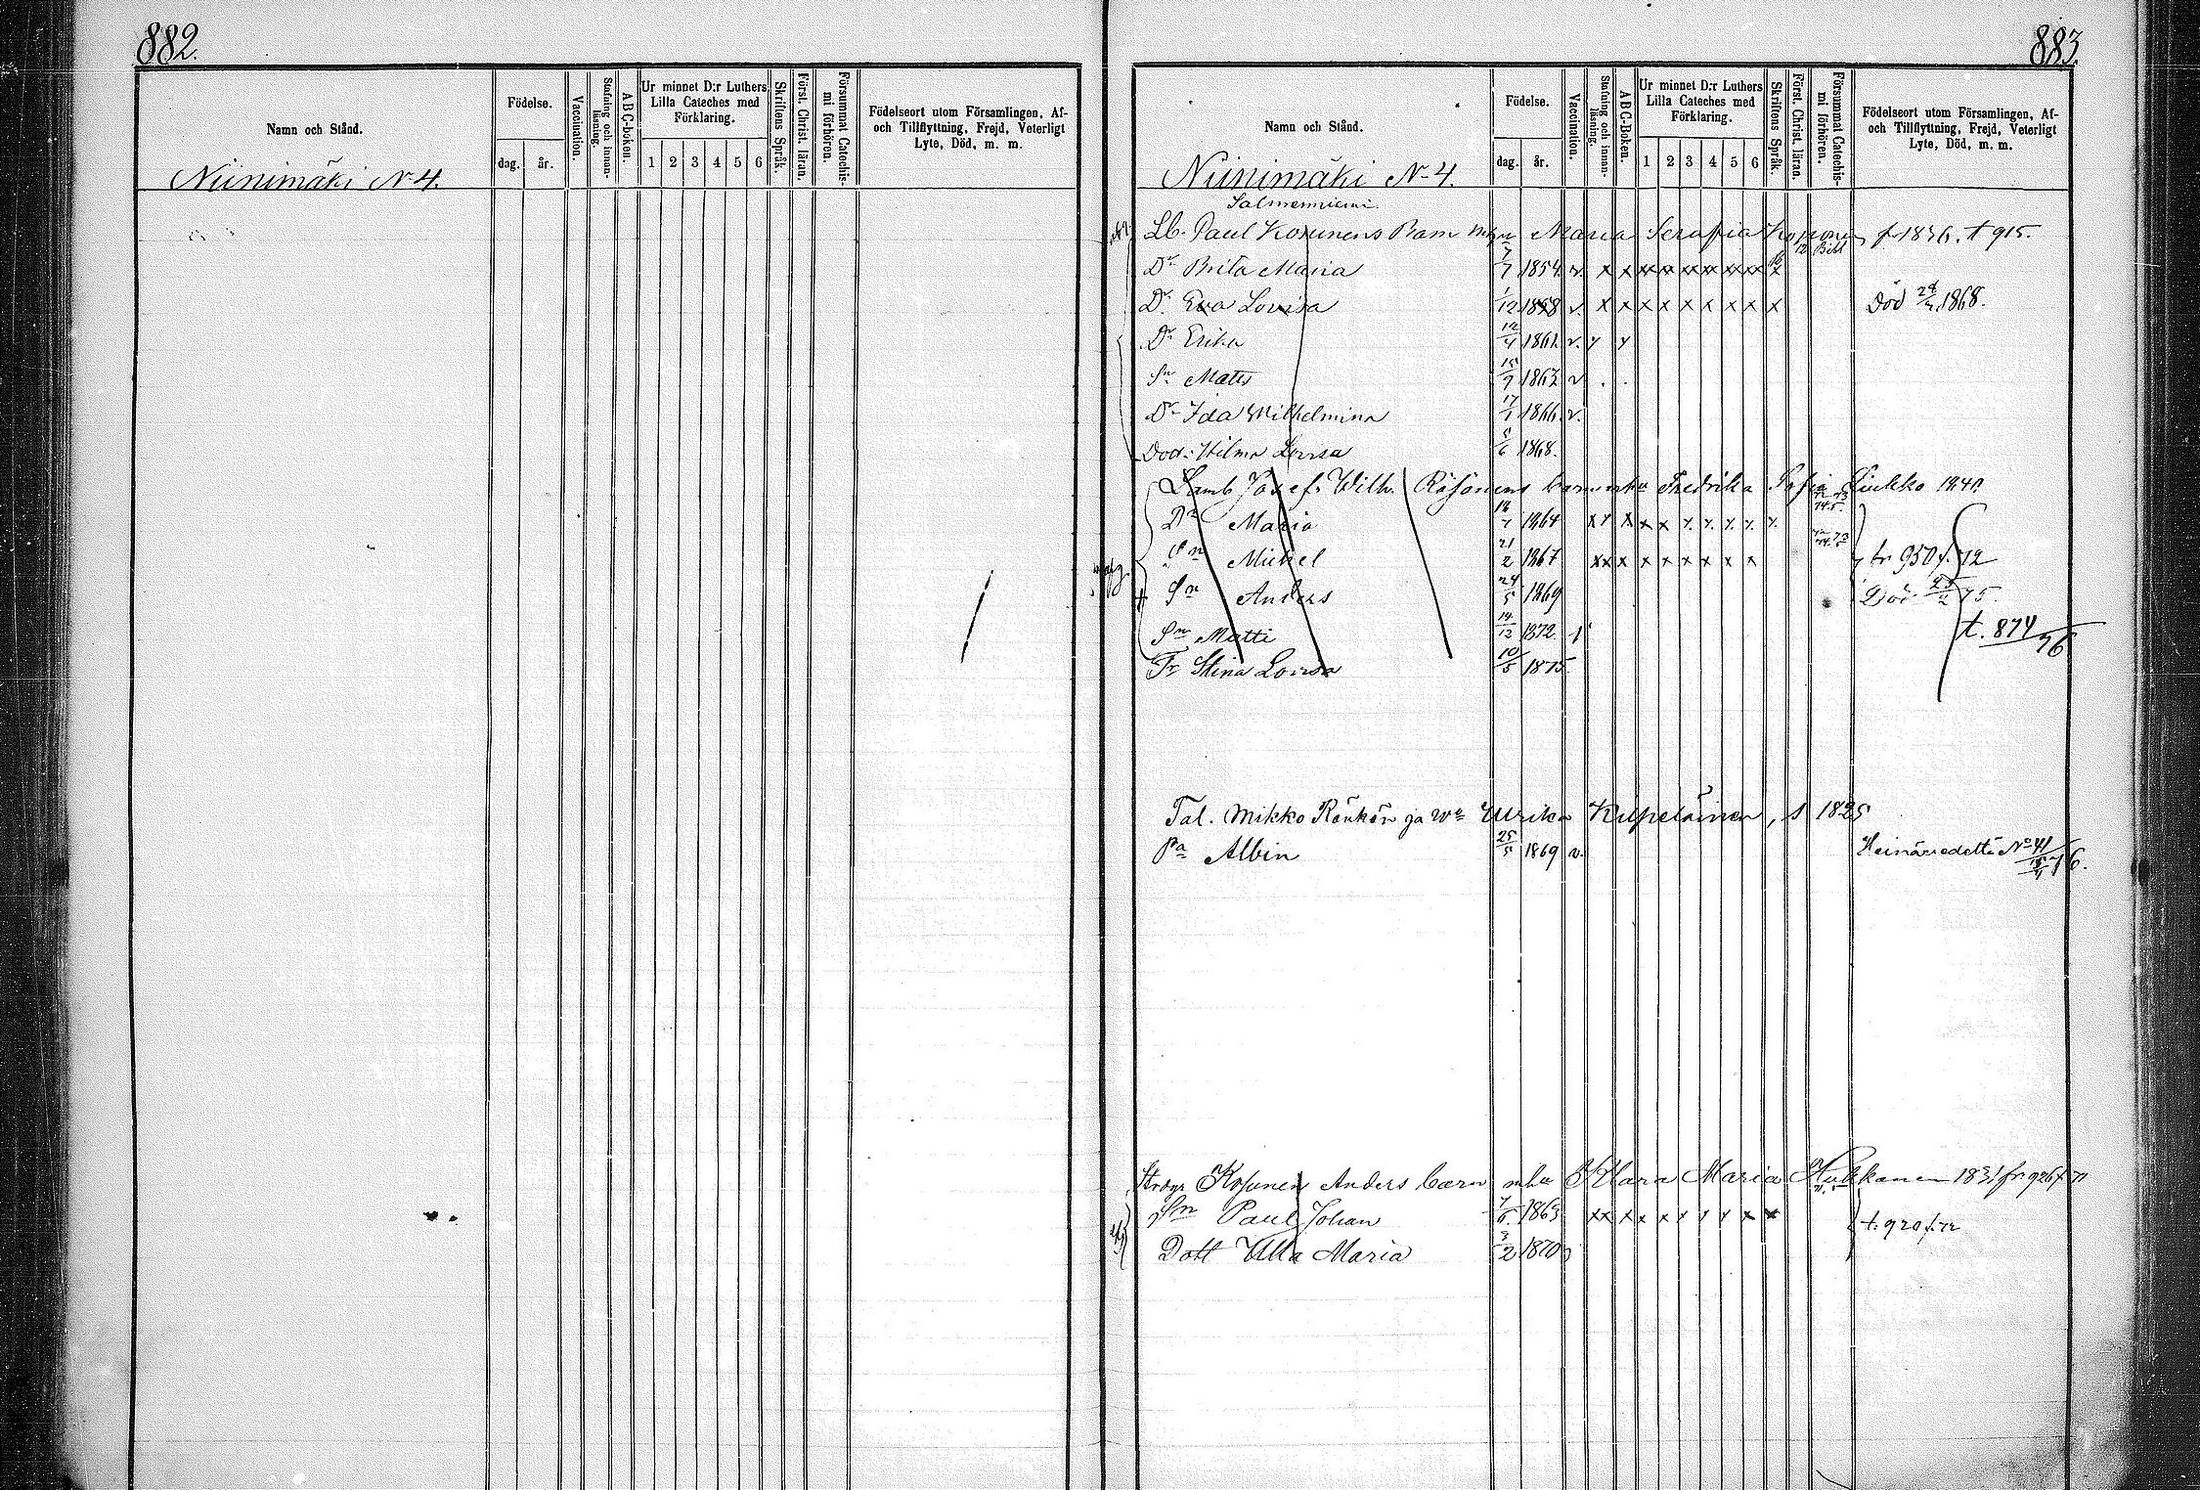 882.
Namn och Stånd.
Födelse.
dag. år.
Vaccination.
Stafning och innan-läsning.
A B C-boken.
Ur minnet D:r Luthers Lilla Cateches med Förklaring.
1 2 3 4 5 6
Skriftens Språk.
Först. Christ. läran.
Försummat Catechis-mi förhören.
Födelseort utom Församlingen, Af-
och Tillflyttning, Frejd, Veterligt
Lyte, Död, m. m.
Niinimäki N 4.
883.
Namn och Stånd.
Födelse.
dag. år.
Vaccination.
Stafning och innan-läsning.
A B C-Boken.
Ur minnet D:r Luthers Lilla Cateches med Förklaring.
1 2 3 4 5 6
Skriftens Språk.
Först. Christ. läran.
Försummat Catechis-mi förhören.
Födelseort utom Församlingen, Af-
och Tillflyttning, Frejd, Veterligt
Lyte, Död, m. m.
Niinimäki N 4.
Salmenniemi
Lb. Paul Kosunens Barn Maria Serafia f. 1836. t 915.
Dr Brita Maria 7/7 1854 v. x x xx xx xx xx xx xx x
Dr Eva Lovisa 1/12 1858 v. x x x x x x x x x Död 1868.
Dr Erika 12/4 1861 v.
Sn Matts 15/9 1863 v
Dr Ida Wilhelmina 17/1 1866 v.
Dod. Hilma Lovisa 5/6 1868.
Josef Wilh. Räsänens Fredrika Sofia Liukko 1840
Dr Maria 1864
Sn Mickel 21/2 1867 xx x x x x x x x fr 950 f. 72
Sn Anders 24/5 1869 Död 75.
Sn Matti 14/12 1872 t. 874/76
Tr Stina Lovisa 10/5 1875
Tal. Mikko Rönkön ja wo Ulrika Kilpeläinen, s 1825
Pa Albin 25/5 1869 v. Heinävedelle No 41
Kosunen Anders barn Klara Maria 1831 fr 926 f 71
Sn Paul Johan 1863 t. 920 f. 72
Dott Ulla Maria 3/2 1870